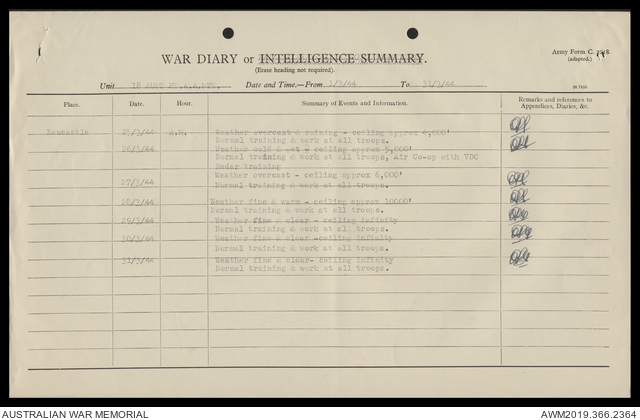 Army Form C. 2118
(adapted.)
WAR DIARY or INTELLIGENCE SUMMARY.
(Erase heading not required).
Unit 18 AUST Date and Time.—From 1/3/44 To 31/3/44
Place. Date. Hour. Summary of Events and Information. Remarks and references to Appendices, Diaries, &c.
Newcastle 25/3/44 A.M. Weather overcast & raining - ceiling approx 4,000'
Normal training & work at all troops.
26/3/44 Weather cold & wet - ceiling approx 5,000'
Normal training & work at all troops, Air Co-op with VDC
Radar training
Weather overcast - ceiling approx 6,000'
27/3/44 Normal training & work at all troops.
28/3/44 Weather fine & warm - ceiling approx 10000'
Normal training & work at all troops.
29/3/44 Weather fine & clear - ceiling infinity
Normal training & work at all troops.
30/3/44 Weather fine & clear -ceiling infinity
Normal training & work at all troops.
31/3/44 Weather fine & clear- ceiling infinity
Normal training & work at all troops.
AUSTRALIAN WAR MEMORIAL
AWM2019.366.2364